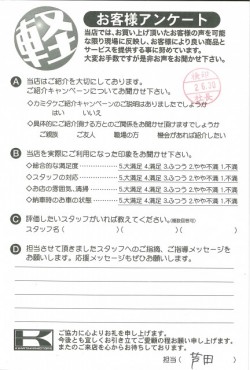 軽
お客様アンケート
当店では、お買い上げ頂いたお客様の声を可能
な限り現場に反映し、お客様により良い商品と
サービスを提供する事に努めています。
大変お手数ですが是非お声をお聞かせ下さい。
A 当店はご紹介を大切にしております。
ご紹介キャンペーンについてお聞かせ下さい。
◇カミタケご紹介キャンペーンのご説明はありましたでしょうか
はい いいえ
◇具体的にご紹介頂ける方とのご関係をお聞かせ頂けますでしょうか
ご親族 ご友人 職場の方 機会があれば紹介したい
B 当店を実際にご利用になった印象をお聞かせ下さい。
◇総合的な満足度 5.大満足 4.満足 3.ふつう 2.やや不満 1.不満
◇スタッフの対応 5.大満足 4.満足 3.ふつう 2.やや不満 1.不満
◇お店の雰囲気、清掃 5.大満足 4.満足 3.ふつう 2.やや不満 1.不満
◇納車時のお車の状態 5.大満足 4.満足 3.ふつう 2.やや不満 1.不満
C 評価したいスタッフがいれば教えてください。
スタッフ名( )( )( )
D 担当させて頂きましたスタッフへのご指摘、ご指導メッセージを
お願いします。応援メッセージもぜひお願いします。
K
ご協力に心よりお礼を申し上げます。
今後とも宜しくお引き立てご愛顧の程お願い申し上げます。
またのご来店を心からお待ちしております。
担当( 芦田 )